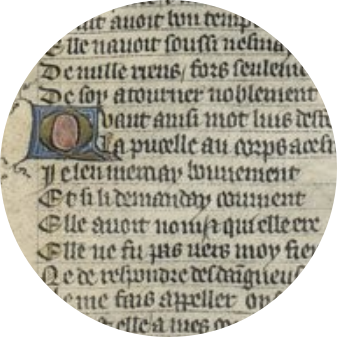 auoit bon temps
Elle nauoit soussi ne
De nulle riens fors seulement
De soy atourner noblement
Quant ainsi mot luis
La pucelle au corps
Je len merciay bonnement
Et si li demanday comment
Elle auoit nom et qui elle ere
Elle ne fu pas uers moy
Ne de respondre desdaigneuse
me fais appeller
elle a mes